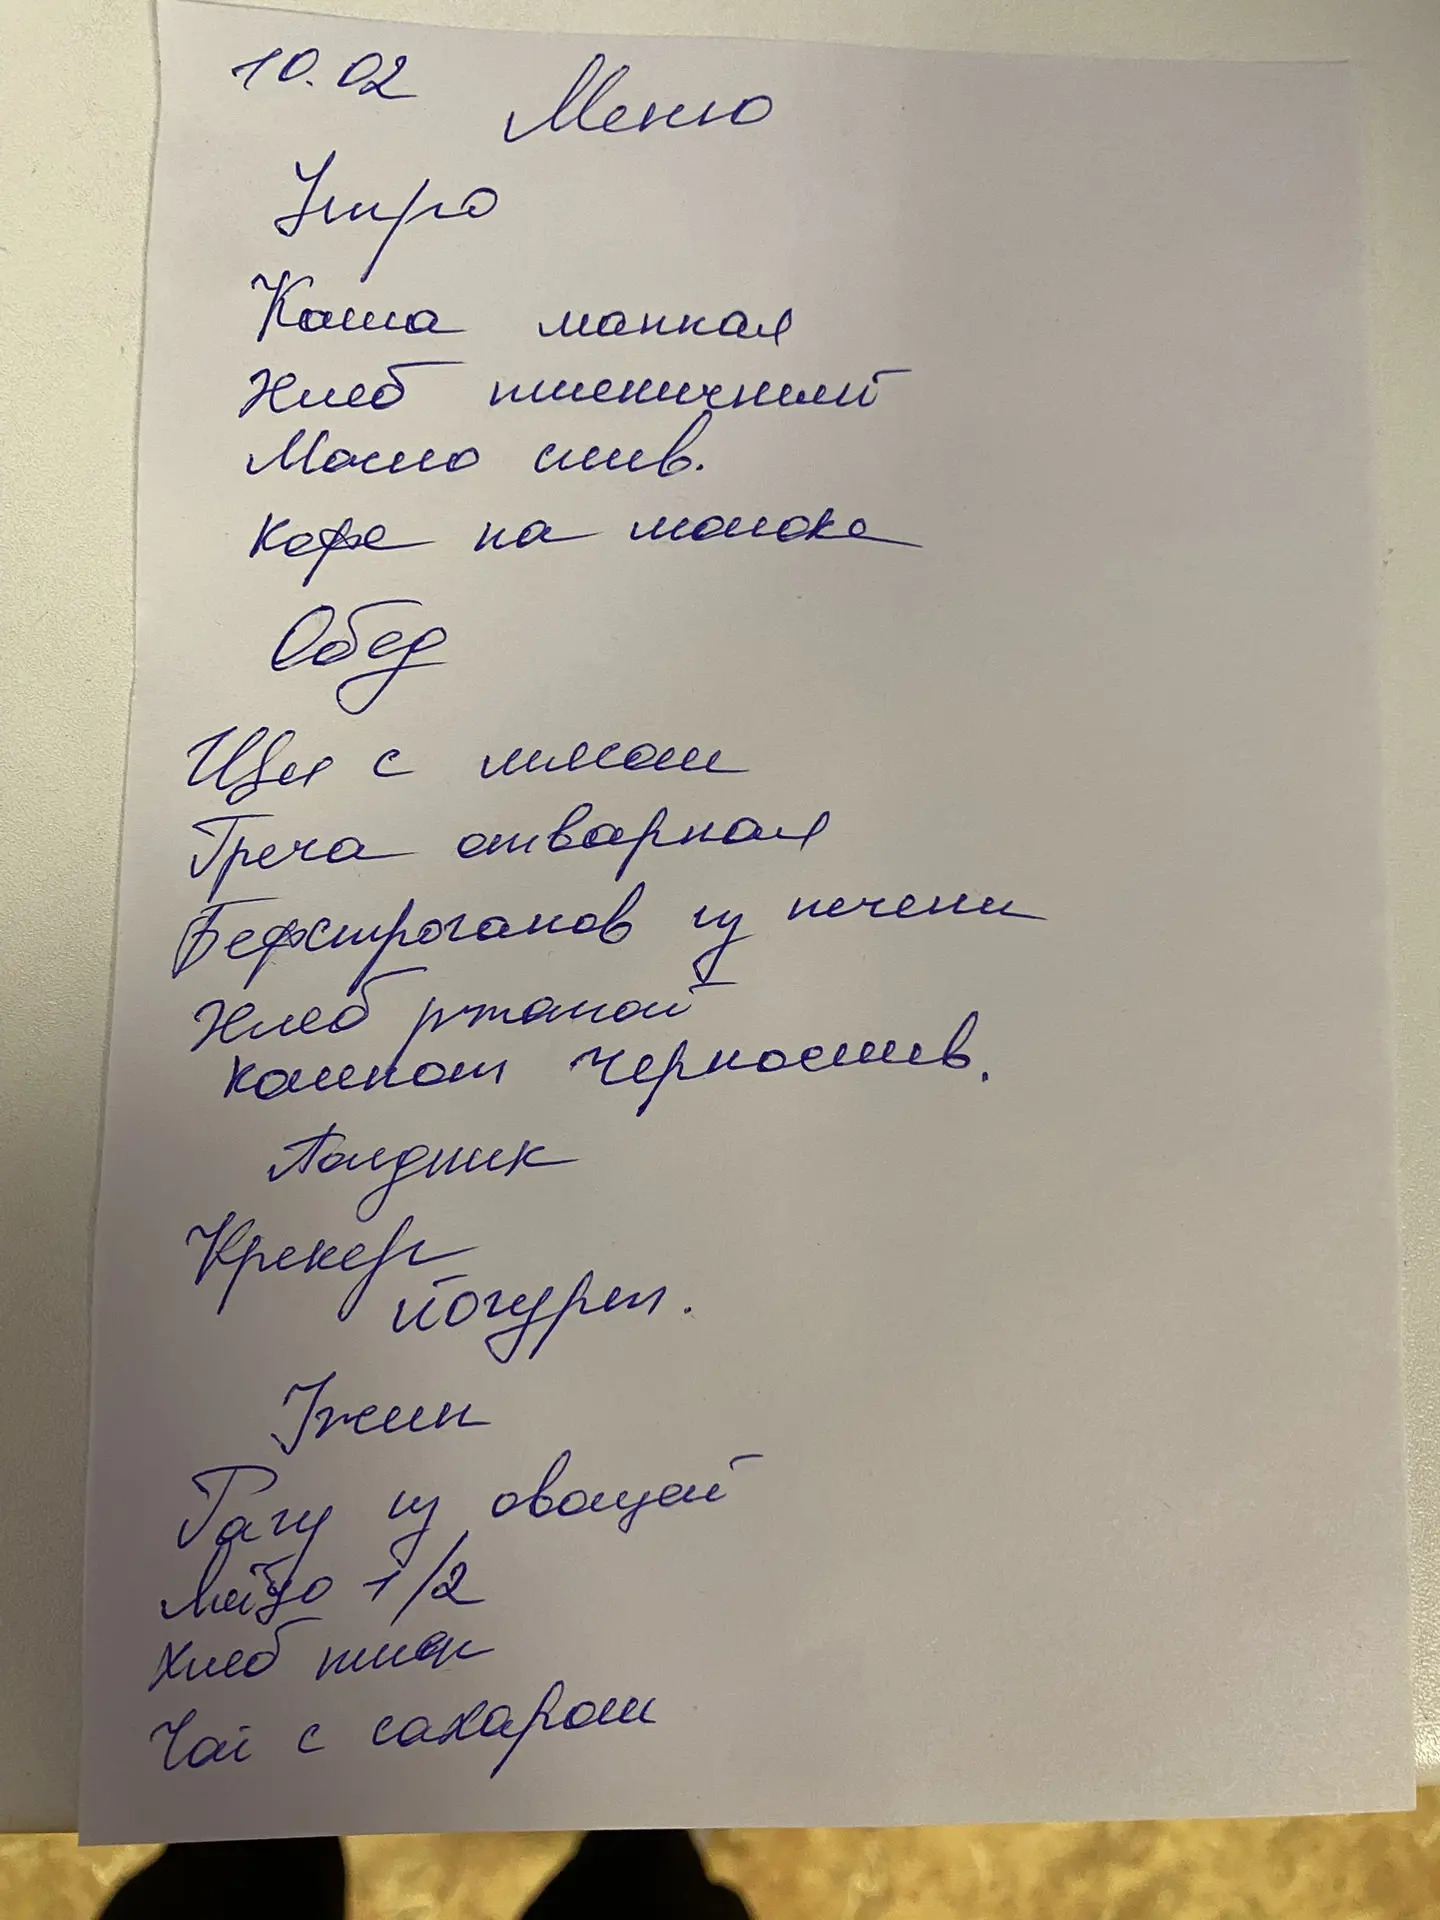 10.02
Меню
Утро
Каша манная
Хлеб пшеничный
Масло слив.
Кофе на молоке
Обед
Щи с мясом
Греча отварная
Бефстроганов из печени
Хлеб ржаной
Компот чернослив.
Полдник
Крекер
Йогурт.
Ужин
Рагу из овощей
Яйцо 1/2
Хлеб пшен
Чай с сахаром